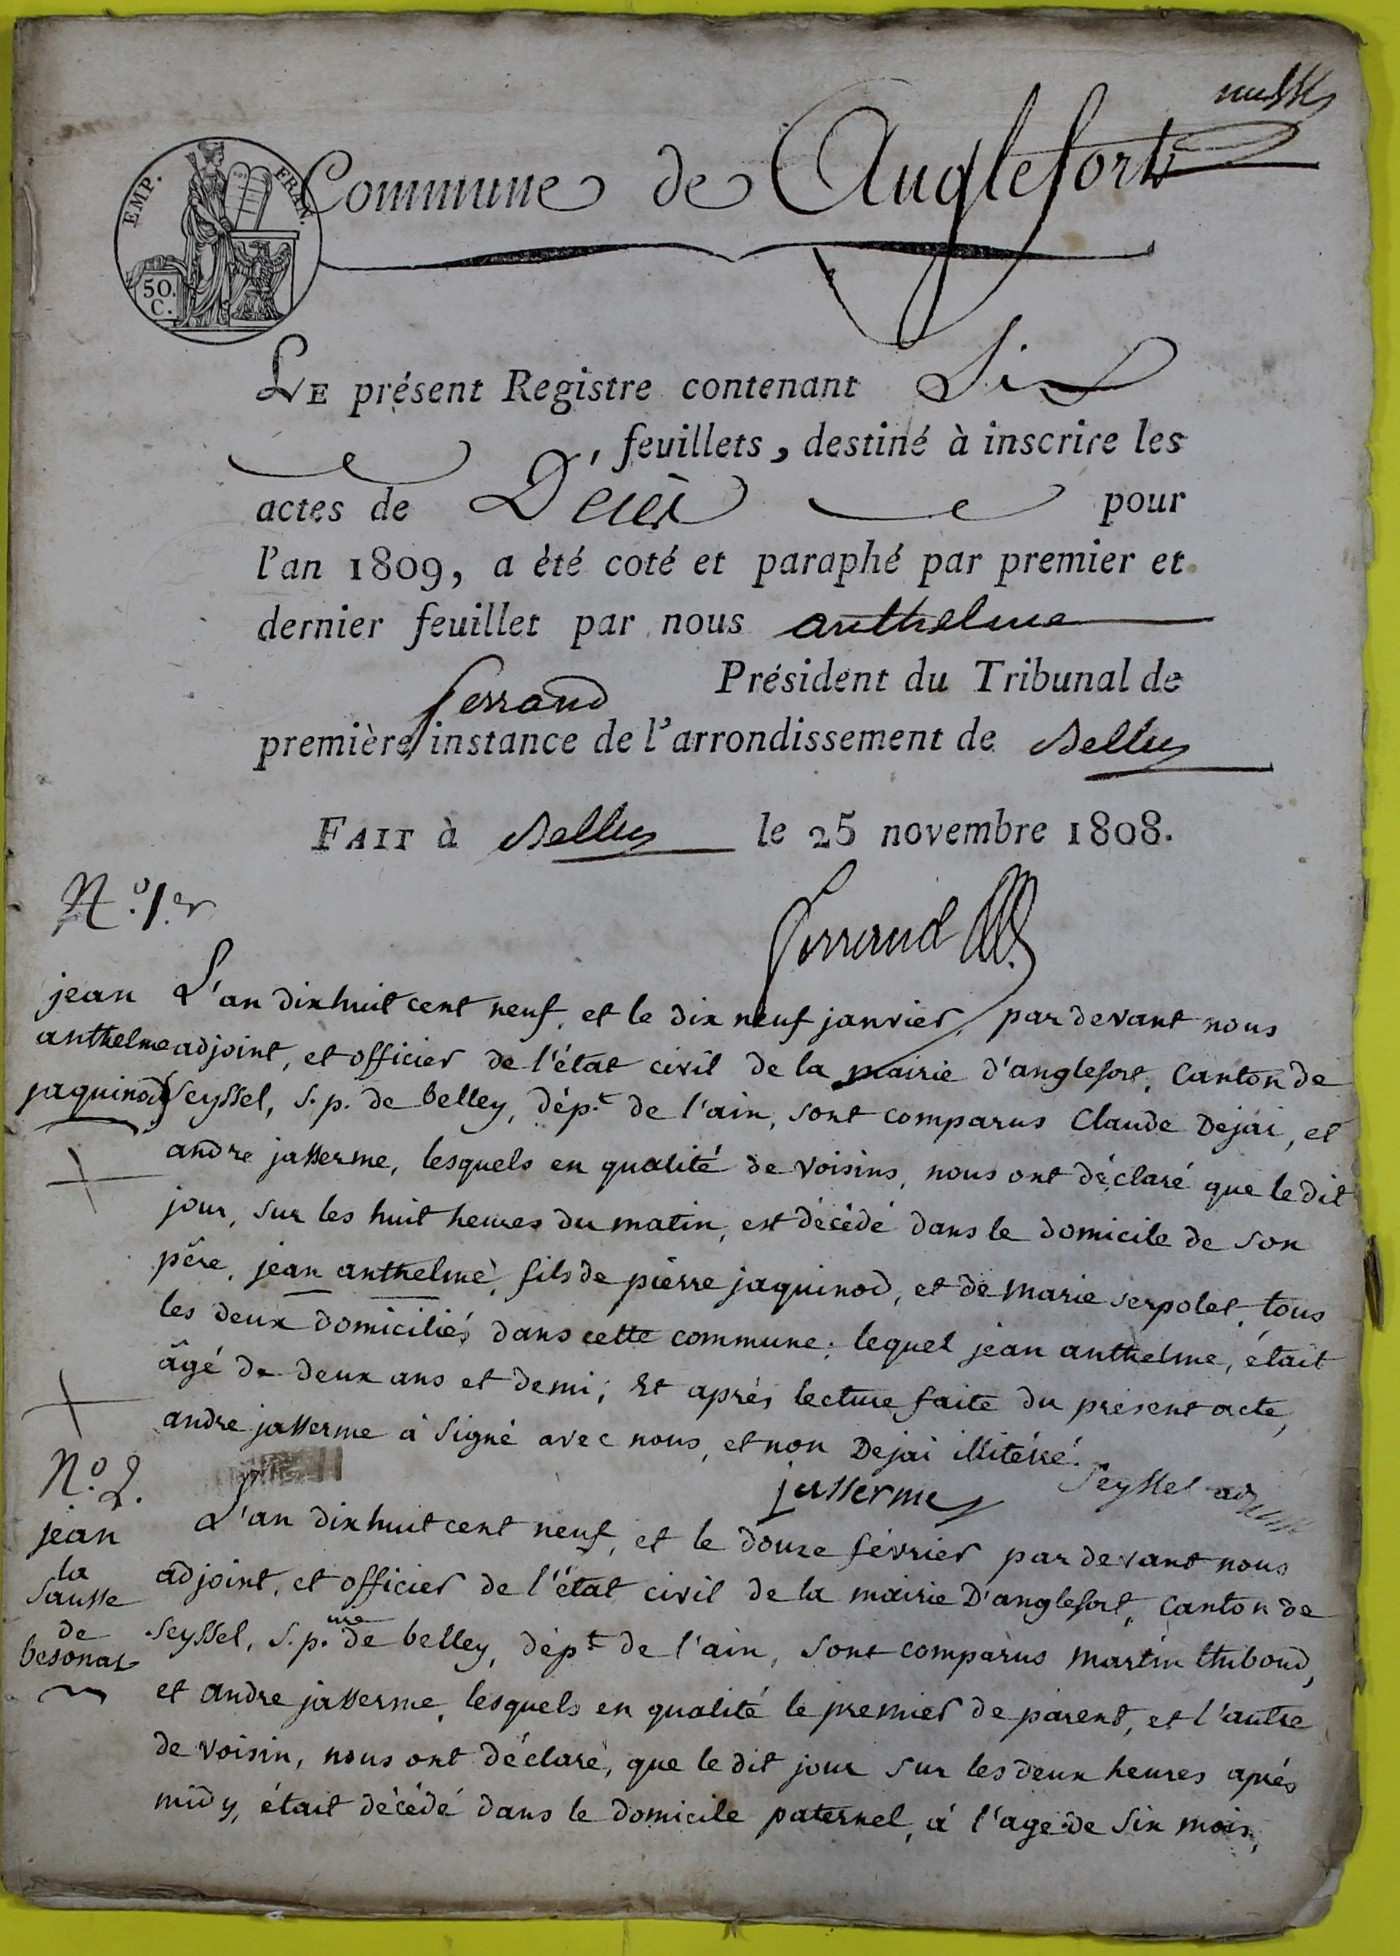 Commune de Anglefort
EMP. FRAN.
50.
C.
LE présent Registre contenant Six
feuillets, destiné à inscrire les
actes de Décès pour
l'an 1809, a été coté et paraphé par premier et
dernier feuillet par nous anthelme
ferrand Président du Tribunal de
première instance de l'arrondissement de Belley
FAIT à Belley le 25 novembre 1808.
Ferrand
N.o 1.er
jean
anthelme
jaquinod
L'an dix huit cent neuf, et le dix neuf janvier, par devant nous
adjoint, et officier de l'état civil de la mairie d'anglefort, Canton de
Seyssel, s. p. de belley, dép.t de l'ain, sont comparus Claude Dejai, et
andre jasserme, lesquels en qualité de voisins, nous ont déclaré que le dit
jour, sur les huit heures du matin, est décédé dans le domicile de son
père, jean anthelme, fils de pierre jaquinod, et de marie serpolet, tous
les deux domiciliés dans cette commune; lequel jean anthelme, était
âgé de deux ans et demi; Et après lecture faite du présent acte,
andre jasserme à signé avec nous, et non Dejai illitéré.
jasserme Seyssel adj
N.o 2.
jean
la
Sausse
de
besonas
L'an dix huit cent neuf, et le douze février par devant nous
adjoint, et officier de l'état civil de la mairie D'anglefort, Canton de
Seyssel, s. p.ure de belley, dép.t de l'ain, sont comparus martin thiboud,
et andre jasserme, lesquels en qualité le premier de parent, et l'autre
de voisin, nous ont déclaré, que le dit jour sur les deux heures après
midy, était décédé dans le domicile paternel, à l'age de six mois,